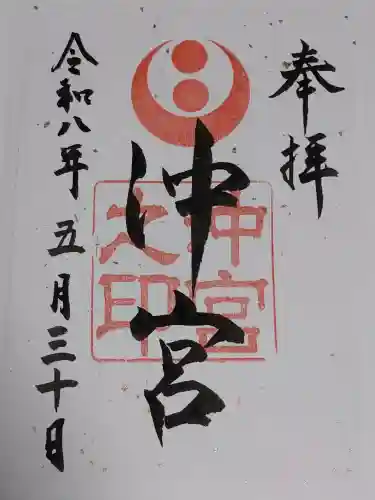 奉拝
沖宮
沖宮
之印
令和八年五月三十日